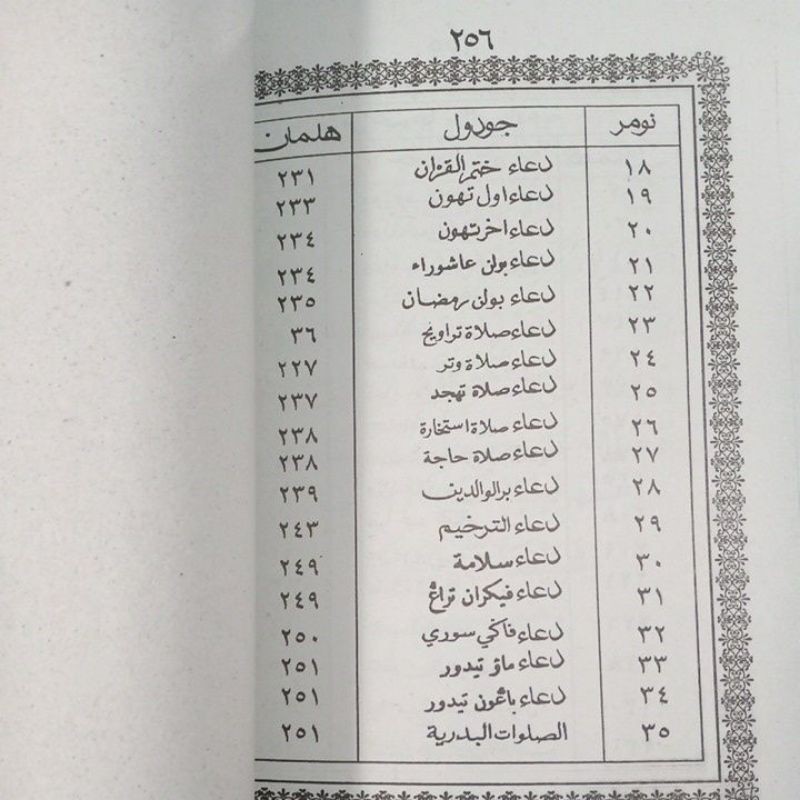 ٢٥٦
نومر جودول هلمان
١٨ دعاء ختم القرآن ٢٣١
١٩ دعاء اول تهون ٢٣٣
٢٠ دعاء اخر تهون ٢٣٤
٢١ دعاء بولن عاشوراء ٢٣٤
٢٢ دعاء بولن رمضان ٢٣٥
٢٣ دعاء صلاة تراويح ٣٦
٢٤ دعاء صلاة وتر ٢٢٧
٢٥ دعاء صلاة تهجد ٢٣٧
٢٦ دعاء صلاة استخارة ٢٣٨
٢٧ دعاء صلاة حاجة ٢٣٨
٢٨ دعاء برالوالدين ٢٣٩
٢٩ دعاء الترخيم ٢٤٣
٣٠ دعاء سلامة ٢٤٩
٣١ دعاء فيكران تراڠ ٢٤٩
٣٢ دعاء فاكي سوري ٢٥٠
٣٣ دعاء ماؤ تيدور ٢٥١
٣٤ دعاء باڠون تيدور ٢٥١
٣٥ الصلوات البدرية ٢٥١